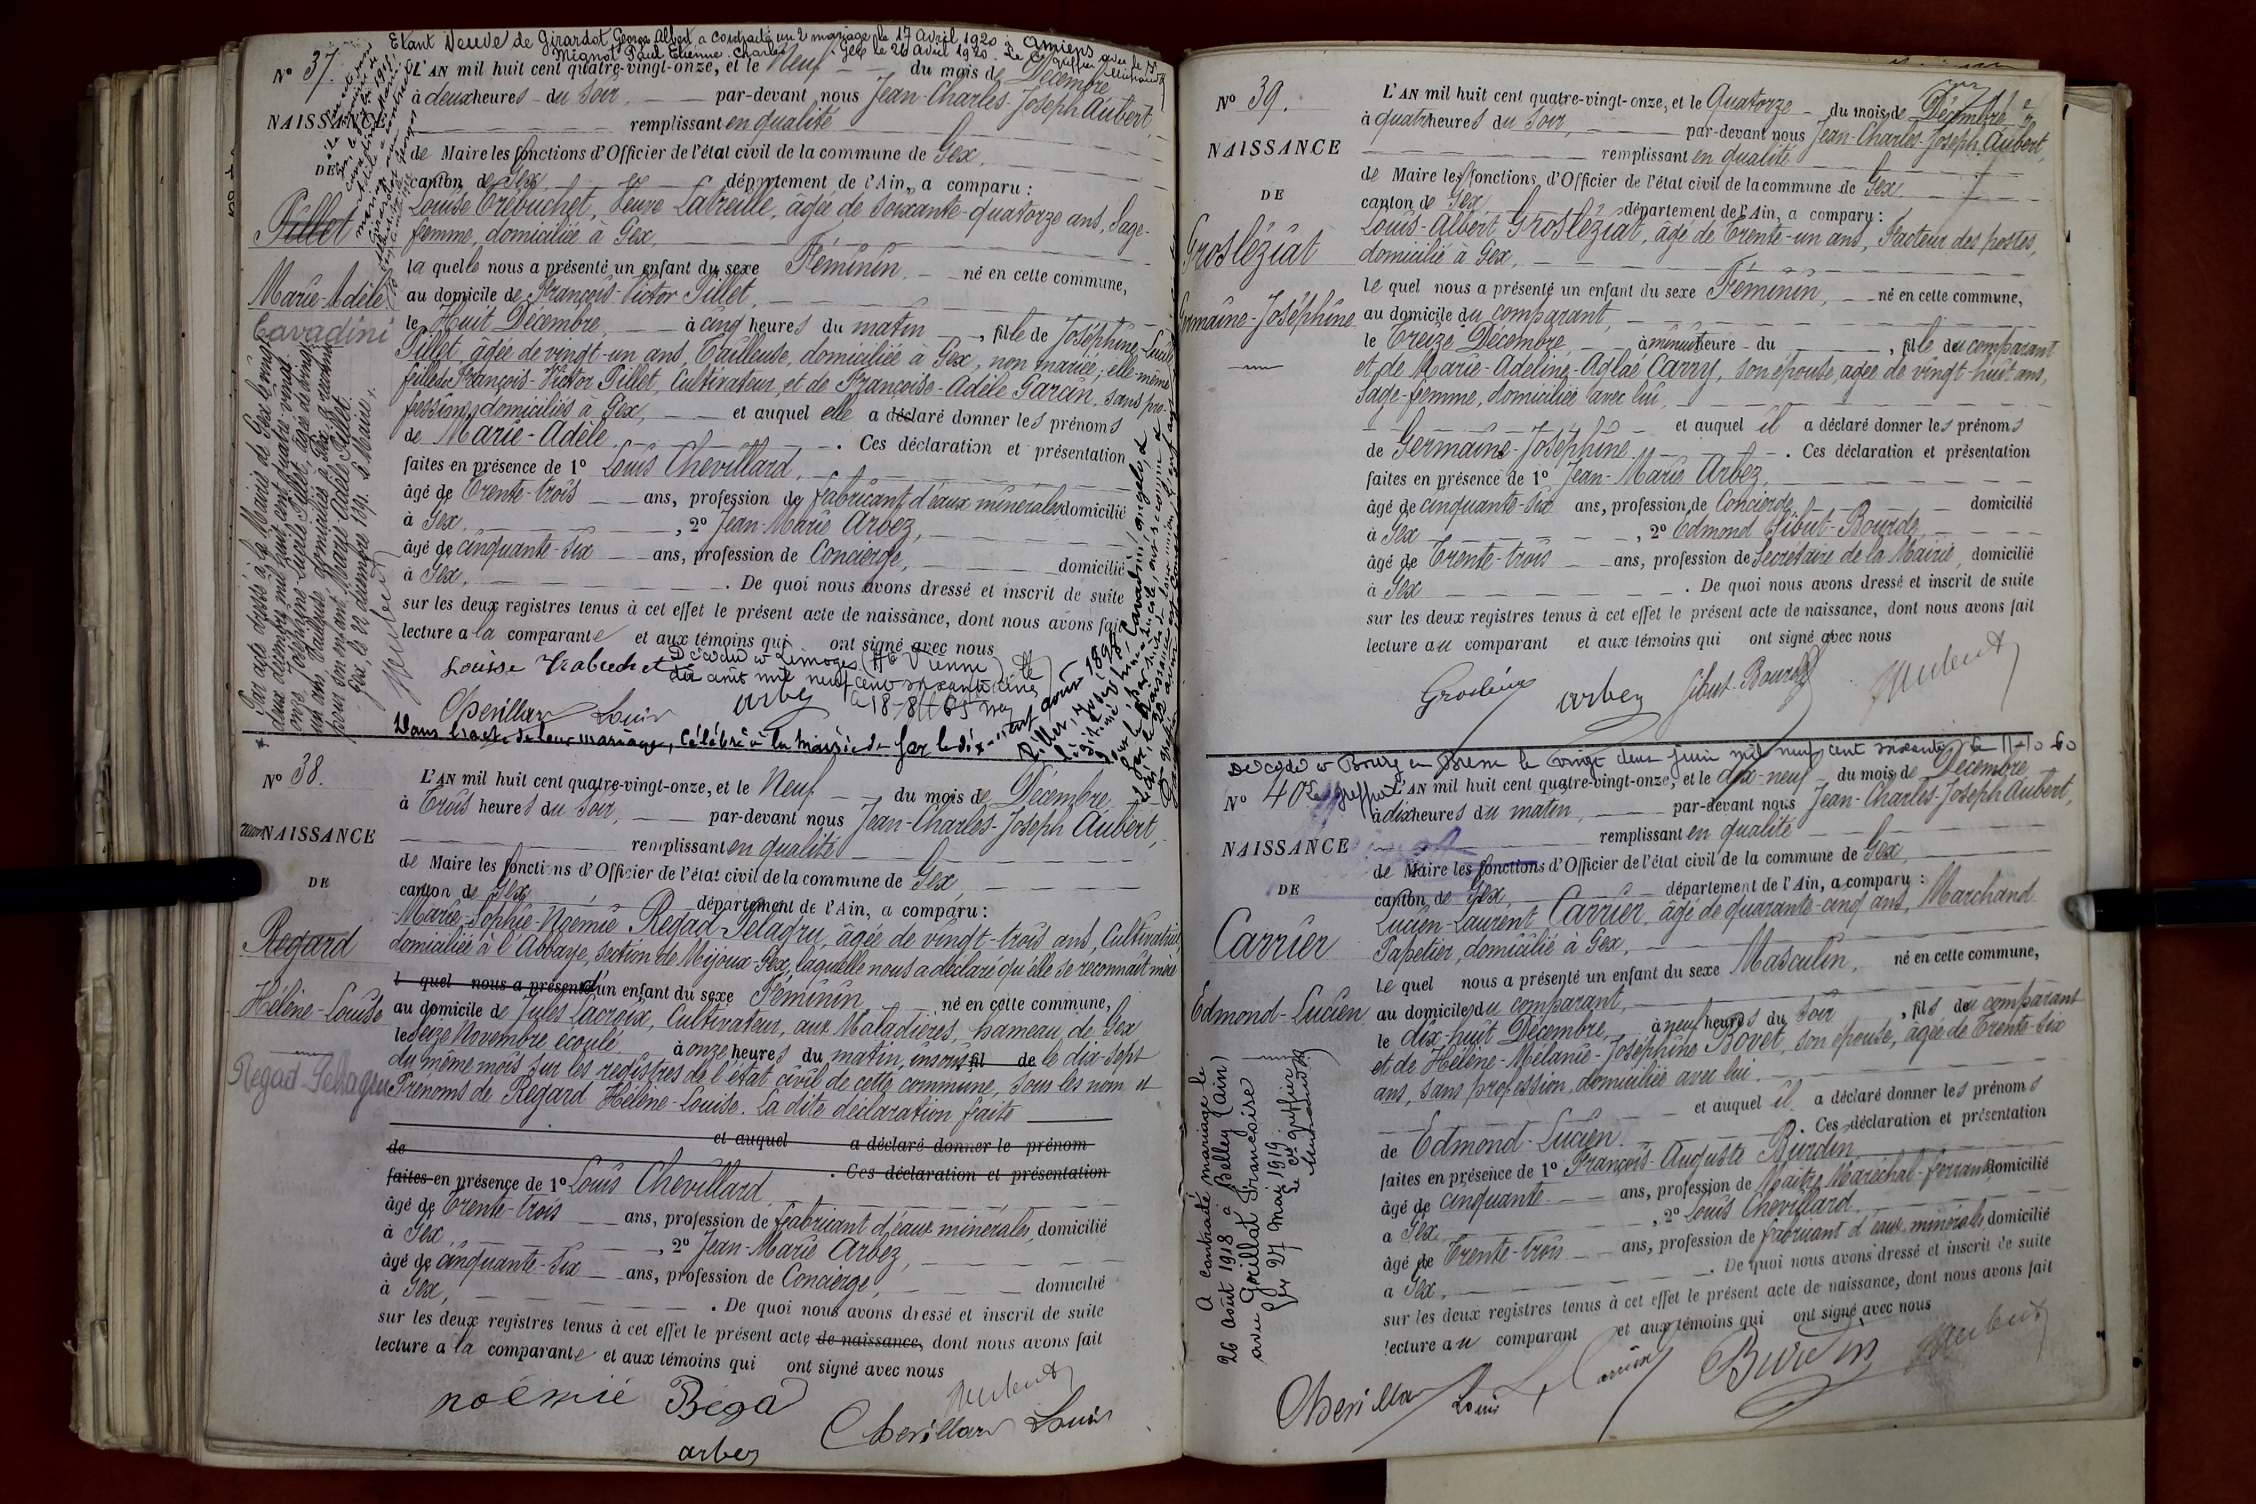 Etant Veuve de Girardot George Albert a contracté un 2 mariage le 17 Avril 1920 à Amiens avec le Sr
Mignot Paul Etienne Charles. Gex le 26 Avril 1920. Le Cis greffier
N° 37.
NAISSANCE
DE
Pillet
Marie-Adèle
Cavadini
L'AN mil huit cent quatre-vingt-onze, et le Neuf du mois de Décembre
à deux heures du Soir, par-devant nous Jean-Charles-Joseph Aubert,
remplissant en qualité
de Maire les fonctions d'Officier de l'état civil de la commune de Gex,
canton de Gex département de l'Ain, a comparu :
Louise Trébuchet, Veuve Labreille, âgée de Soixante-quatorze ans, Sage-
femme, domiciliée à Gex,
la quelle nous a présenté un enfant du sexe Féminin, né en cette commune,
au domicile de François-Victor Pillet,
le Huit Décembre, à cinq heures du matin, fille de Joséphine-Lucie
Pillet, âgée de vingt-un ans, Tailleuse, domiciliée à Gex, non mariée; elle-même
fille de François-Victor Pillet, Cultivateur, et de Françoise-Adèle Garcin, sans pro-
fession, domiciliés à Gex, et auquel elle a déclaré donner les prénoms
de Marie-Adèle. Ces déclaration et présentation
faites en présence de 1° Louis Chevillard,
âgé de Trente-trois ans, profession de fabricant d'eaux minérales domicilié
à Gex, 2° Jean-Marie Arbez,
âgé de cinquante-six ans, profession de Concierge, domicilié
à Gex. De quoi nous avons dressé et inscrit de suite
sur les deux registres tenus à cet effet le présent acte de naissance, dont nous avons fait
lecture a la comparante et aux témoins qui ont signé avec nous
Louise Trabuchet
Chevillar Louis
arbez
Aubert
Décédée à Limoges (Hte Vienne) le
dix août mil neuf cent soixante cinq
le 18-8-65
Dans l'acte de leur mariage, célébré à la Mairie de Gex le dix-sept août 1898,
Par acte dressé à la Mairie de Gex le vingt
deux décembre mil huit cent quatre vingt
onze, Joséphine Lucie Pillet, âgée de vingt
un ans, Tailleuse, domiciliée à Gex, a reconnu
pour son enfant Marie Adèle Pillet.
Gex, le 22 décembre 1891. Le Maire,
Aubert
N° 38.
NAISSANCE
DE
Regard
Hélène-Louise
Regad Pelagru
L'AN mil huit cent quatre-vingt-onze, et le Neuf du mois de Décembre
à Trois heures du Soir, par-devant nous Jean-Charles-Joseph Aubert,
remplissant en qualité
de Maire les fonctions d'Officier de l'état civil de la commune de Gex,
canton de Gex département de l'Ain, a comparu :
Marie-Sophie-Noémie Regad-Pelagru, âgée de vingt-trois ans, Cultivatrice,
domiciliée à l'Abbaye, section de Mijoux-Gex, laquelle nous a déclaré qu'elle se reconnaît mère
l quel nous a présenté d'un enfant du sexe Féminin, né en cette commune,
au domicile de Jules Lacroix, Cultivateur, aux Maladières, hameau de Gex
le Seize Novembre écoulé, à onze heures du matin, inscrit fil de le dix-sept
du même mois sur les registres de l'état civil de cette commune, sous les nom et
Prénoms de Regard Hélène-Louise. La dite déclaration faite
et auquel a déclaré donner le prénom
de . Ces déclaration et présentation
faites en présence de 1° Louis Chevillard
âgé de Trente-trois ans, profession de fabricant d'eaux minérales, domicilié
à Gex, 2° Jean-Marie Arbez,
âgé de cinquante-six ans, profession de Concierge, domicilié
à Gex, . De quoi nous avons dressé et inscrit de suite
sur les deux registres tenus à cet effet le présent acte de naissance, dont nous avons fait
lecture a la comparante et aux témoins qui ont signé avec nous
noémie Béga
Aubert
Chevillar Louis
arbez
N° 39.
NAISSANCE
DE
Grosléziat
Germaine-Joséphine
L'AN mil huit cent quatre-vingt-onze, et le Quatorze du mois de Décembre
à quatre heures du Soir, par-devant nous Jean-Charles-Joseph Aubert,
remplissant en qualité
de Maire les fonctions d'Officier de l'état civil de la commune de Gex,
canton de Gex département de l'Ain, a comparu :
Louis-Albert Grosléziat, âgé de Trente-un ans, Facteur des postes,
domicilié à Gex,
le quel nous a présenté un enfant du sexe Féminin, né en cette commune,
au domicile du comparant,
le Treize Décembre, à minuit heure du , fille du comparant
et de Marie-Adeline-Aglaé Carry, son épouse, âgée de vingt-huit ans,
Sage-femme, domiciliée avec lui,
et auquel il a déclaré donner les prénoms
de Germaine-Joséphine. Ces déclaration et présentation
faites en présence de 1° Jean-Marie Arbez,
âgé de cinquante-six ans, profession de Concierge domicilié
à Gex, 2° Edmond Sibut-Bourde
âgé de Trente-trois ans, profession de Secrétaire de la Mairie, domicilié
à Gex. De quoi nous avons dressé et inscrit de suite
sur les deux registres tenus à cet effet le présent acte de naissance, dont nous avons fait
lecture au comparant et aux témoins qui ont signé avec nous
arbez Sibut-Bourde Aubert
Décédé à Bourg en Bresse le vingt deux juin mil neuf cent soixante le 11-10-60
Le greffier
N° 40
NAISSANCE
DE
Carrier
Edmond-Lucien
L'AN mil huit cent quatre-vingt-onze, et le dix-neuf du mois de Décembre
à dix heures du matin, par-devant nous Jean-Charles-Joseph Aubert,
remplissant en qualité
de Maire les fonctions d'Officier de l'état civil de la commune de Gex,
canton de Gex, département de l'Ain, a comparu :
Lucien-Laurent Carrier, âgé de quarante-cinq ans, Marchand
Papetier, domicilié à Gex,
le quel nous a présenté un enfant du sexe Masculin, né en cette commune,
au domicile du comparant,
le dix-huit Décembre, à neuf heures du Soir, fils du comparant
et de Hélène-Mélanie-Joséphine Bovet, son épouse, âgée de Trente-six
ans, sans profession, domiciliée avec lui,
et auquel il a déclaré donner les prénoms
de Edmond-Lucien. Ces déclaration et présentation
faites en présence de 1° François-Auguste Burdin
âgé de cinquante ans, profession de Maître Maréchal-ferrant domicilié
à Gex, 2° Louis Chevillard
âgé de Trente-trois ans, profession de fabricant d'eaux minérales domicilié
à Gex, . De quoi nous avons dressé et inscrit de suite
sur les deux registres tenus à cet effet le présent acte de naissance, dont nous avons fait
lecture au comparant et aux témoins qui ont signé avec nous
Chevillar Louis L. Carrier Burdin Aubert
A contracté mariage le
26 août 1918 à Belley (Ain)
avec Grillat Françoise
Gex 27 Mai 1919.
Le Cis greffier